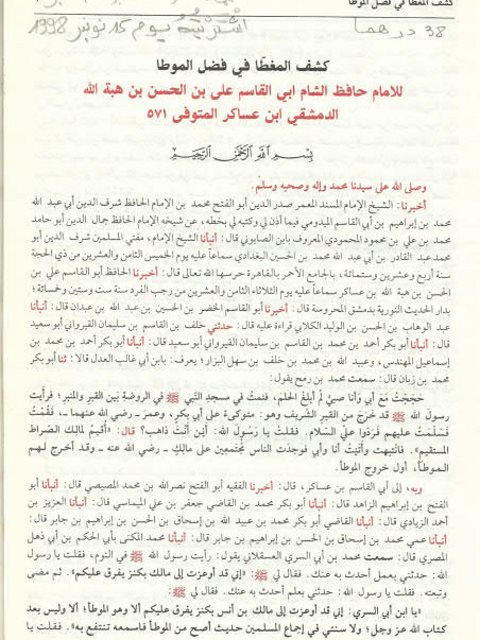 كشف المغطا في فضل الموطا
38 درهما
اشتريته يوم 15 نونبر 1998
كشف المغطّا في فضل الموطا
للامام حافظ الشام ابي القاسم على بن الحسن بن هبة الله
الدمشقي ابن عساكر المتوفى ٥٧١
بسم الله الرحمن الرحيم
وصلى الله على سيدنا محمد وآله وصحبه وسلم.
أخبرنا: الشيخ الإمام المسند المعمر صدر الدين أبو الفتح محمد بن الإمام الحافظ شرف الدين أبي عبد الله
محمد بن إبراهيم بن أبي القاسم الميدومي فيما أذن لي وكتبه لي بخطه، عن شيخه الإمام الحافظ جمال الدين أبو حامد
محمد بن علي بن محمود المحمودي المعروف بابن الصابوني قال: أنبأنا الشيخ الإمام، مفتي المسلمين شرف الدين أبو
محمد عبد القادر بن أبي عبد الله محمد بن الحسين البغدادي سماعاً عليه يوم الخميس الثامن والعشرين من ذي الحجة
سنة أربع وعشرين وستمائة، بالجامع الأحمر بالقاهرة حرسها الله تعالى قال: أخبرنا الحافظ أبو القاسم علي بن
الحسن بن هبة الله بن عساكر سماعاً عليه يوم الثلاثاء الثامن والعشرين من رجب الفرد سنة ست وستين وخمسمائة؛
بدار الحديث النورية بدمشق المحروسة قال: أخبرنا أبو القاسم الخضر بن الحسين بن عبد الله بن عبدان قال: أنبأنا
عبد الوهاب بن الحسن بن الوليد الكلابي قراءة عليه قال: حدثني خلف بن القاسم بن سليمان القيرواني أبو سعيد
قال: أنبأنا أبو بكر أحمد بن محمد بن القاسم بن سليمان القيرواني أبو سعيد قال: أنبأنا أبو بكر أحمد بن محمد بن
إسماعيل المهندس، وعبيد الله بن محمد بن خلف بن سهل البزار؛ يعرف: بابن أبي غالب العدل قالا: ثنا أبو بكر
محمد بن زبان قال: سمعت محمد بن رمح يقول:
حججت مع أبي وأنا صبي لم أبلغ الحلم، فنمت في مسجد النبي ﷺ في الروضة بين القبر والمنبر؛ فرأيت
رسول الله ﷺ قد خرج من القبر الشريف وهو: متوكئ على أبي بكر، وعمر ـ رضي الله عنهما ـ، فقمت
فسلمت عليهم فردوا علي السلام. فقلت يا رسول الله: أين أنت ذاهب؟ قال: «أقيم لمالك الصراط
المستقيم». فانتبهت وأتيت أنا وأبي فوجدت الناس مجتمعين على مالك ـ رضي الله عنه ـ وقد أخرج لهم
الموطأ، أول خروج الموطأ.
وبه، إلى أبي القاسم بن عساكر، قال: أخبرنا الفقيه أبو الفتح نصر الله بن محمد المصيصي قال: أنبأنا أبو
الفتح بن إبراهيم الزاهد قال: أنبأنا أبو بكر محمد بن القاضي جعفر بن علي الميماسي قال: أنبأنا العزيز بن
أحمد الزيادي قال: أنبأنا القاضي أبو بكر محمد بن عبيد الله بن إسحاق بن الحسن بن إبراهيم بن جابر قال:
أنبأنا عمي محمد بن إسحاق بن الحسن بن إبراهيم بن جابر قال: أنبأنا محمد المكنى بأبي الحكم بن أبي ذهل
المصري قال: سمعت محمد بن أبي السري العسقلاني يقول: رأيت رسول الله ﷺ في النوم، فقلت يا رسول
الله: حدثني بعمل أحدث به عنك. فقال لي ﷺ: «إني قد أوعزت إلى مالك بكنز يفرق عليكم». ثم مضى
وتبعته. فقلت يا رسول الله: حدثني بعلم أحدث به عنك. فقال لي ﷺ:
«يا ابن أبي السري: إني قد أوعزت إلى مالك بن أنس بكنز يفرق عليكم ألا وهو الموطأ؛ ألا وليس بعد
كتاب الله عز وجل؛ ولا سنتي في إجماع المسلمين حديث أصح من الموطأ فاسمعه تنتفع به». فقلت يا